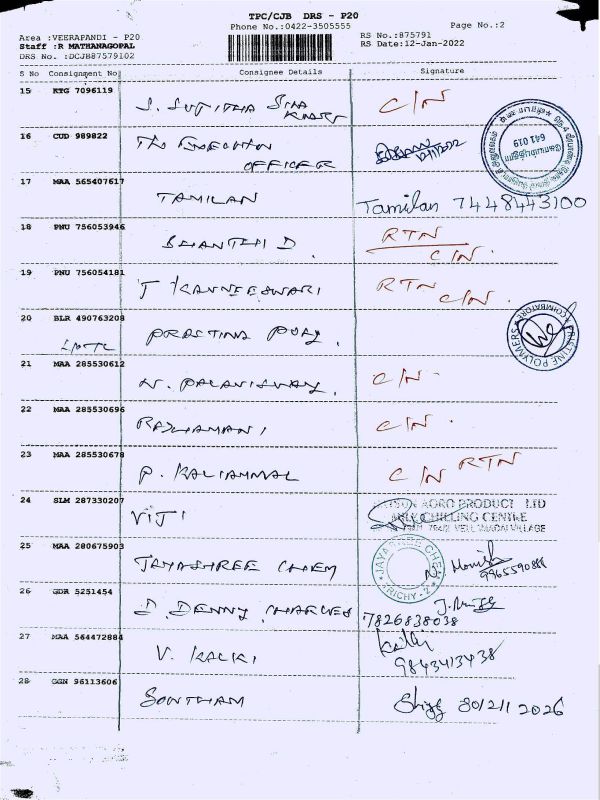 TPC/CJB DRS - P20
Phone No.:0422-3505555
Page No.:2
Area :VEERAPANDI - P20
Staff :R MATHANAGOPAL
DRS No. :DCJB87579102
RS No.:875791
RS Date:12-Jan-2022
S No Consignment No Consignee Details Signature
15 KTG 7096119 S. SUJITHA C/N
16 CUD 989822 THE EXECUTION OFFICER
641 019
17 MAA 565407617 TAMILAN Tamilan 7448443100
18 PNU 756053946 SHANTHI D RTN C/N.
19 PNU 756054181 T KANNEESWARI RTN C/N.
20 BLR 490763208
PRISTINE POLYMERS COIMBATORE
21 MAA 285530612 N. PALANISWAY. C/N.
22 MAA 285530696 RAJAMANI C/N.
23 MAA 285530678 P. KALIAMMAL C/N RTN
24 SLM 287330207 VIJI
AGRO PRODUCT LTD
MILK CHILLING CENTRE
VILLAGE
25 MAA 280675903 JAYASHREE CHEM
JAYASHREE CHEM TRICHY-2
N. Monish
26 GDR 5251454 D. DENNY CHARLES
7826838038
27 MAA 564472884 V. KALKI
9843413438
28 GGN 96113606 SONTHAM